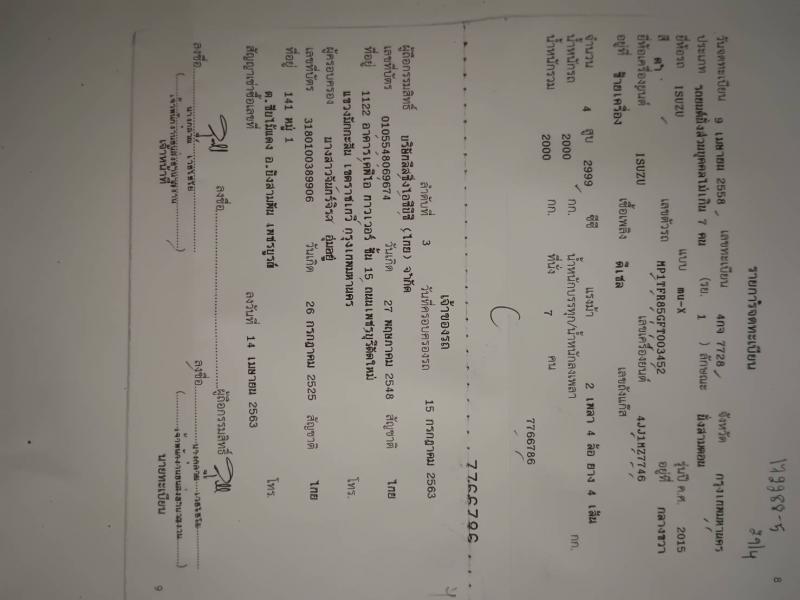 8
รายการจดทะเบียน
วันจดทะเบียน 9 เมษายน 2558 เลขทะเบียน 4กจ 7728 จังหวัด กรุงเทพมหานคร
ประเภท รถยนต์นั่งส่วนบุคคลไม่เกิน 7 คน (รย. 1 ) ลักษณะ นั่งสามตอน
ยี่ห้อรถ ISUZU แบบ mu-X รุ่นปี ค.ศ. 2015
สี เลขตัวรถ MP1TFR85GFT003452 อยู่ที่ กลางขวา
ยี่ห้อเครื่องยนต์ ISUZU เลขเครื่องยนต์ 4JJ1MZ7746
อยู่ที่ ซ้ายเครื่อง เชื้อเพลิง ดีเซล เลขถังแก๊ส
จำนวน 4 สูบ 2999 ซีซี แรงม้า 2 เพลา 4 ล้อ ยาง 4 เส้น
น้ำหนักรถ 2000 กก. น้ำหนักบรรทุก/น้ำหนักลงเพลา กก.
น้ำหนักรวม 2000 กก. ที่นั่ง 7 คน
7766786
7766786
เจ้าของรถ
ลำดับที่ 3 วันที่ครอบครองรถ 15 กรกฎาคม 2563
ผู้ถือกรรมสิทธิ์ บริษัทลีสซิ่งไอซีบีซี (ไทย) จำกัด
เลขที่บัตร 0105548069674 วันเกิด 27 พฤษภาคม 2548 สัญชาติ ไทย
ที่อยู่ 1122 อาคารเคพีไอ ทาวเวอร์ ชั้น 15 ถนนเพชรบุรีตัดใหม่
แขวงมักกะสัน เขตราชเทวี กรุงเทพมหานคร โทร.
ผู้ครอบครอง นางสาวจันทร์จิรส อุ่มอยู่
เลขที่บัตร 3180100389906 วันเกิด 26 กรกฎาคม 2525 สัญชาติ ไทย
ที่อยู่ 141 หมู่ 1
ต.ซับไม้แดง อ.บึงสามพัน เพชรบูรณ์ โทร.
สัญญาเช่าซื้อเลขที่ ลงวันที่ 14 เมษายน 2563
ลงชื่อ ผู้ถือกรรมสิทธิ์
ลงชื่อ ลงชื่อ
เจ้าหน้าที่ นายทะเบียน
9